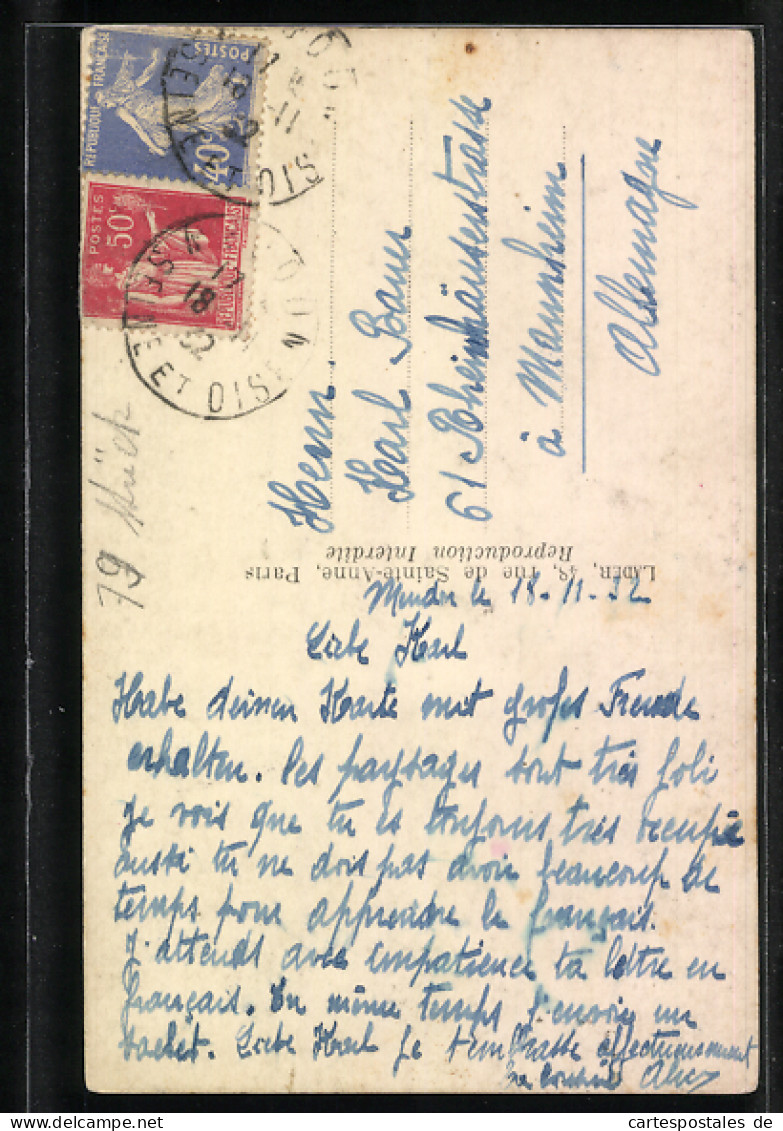 POSTES
RÉPUBLIQUE FRANÇAISE
40c
POSTES
50c
RÉPUBLIQUE FRANÇAISE
SEINE ET OISE
18
11
32
SEINE ET OISE
18
32
79 Stück
Herrn
Karl Bauer
61 Rheinhäuserstrasse
à Mannheim
Allemagne
LADER, 48, rue de Sainte-Anne, Paris
Reproduction Interdite
le 18-11-32
Liebe Karl
Habe deinen Karte mit großes Freude
erhalten. Les paysages sont très joli
je vois que tu es toujours très occupé
aussi tu ne dois pas avoir beaucoup de
temps pour apprendre le français.
J'attends avec impatience ta lettre en
français. En même temps j'envoie un
Liebe Karl je t'embrasse affectueusement
ta cousine
delcampe.net
cartespostales de / com